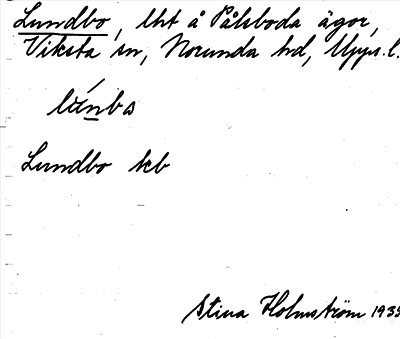 Lundbo, lht å Pålsboda ägor,
Viksta sn, Norunda hd, Upps. l.
Lundbo kb
Stina Holmström 1935